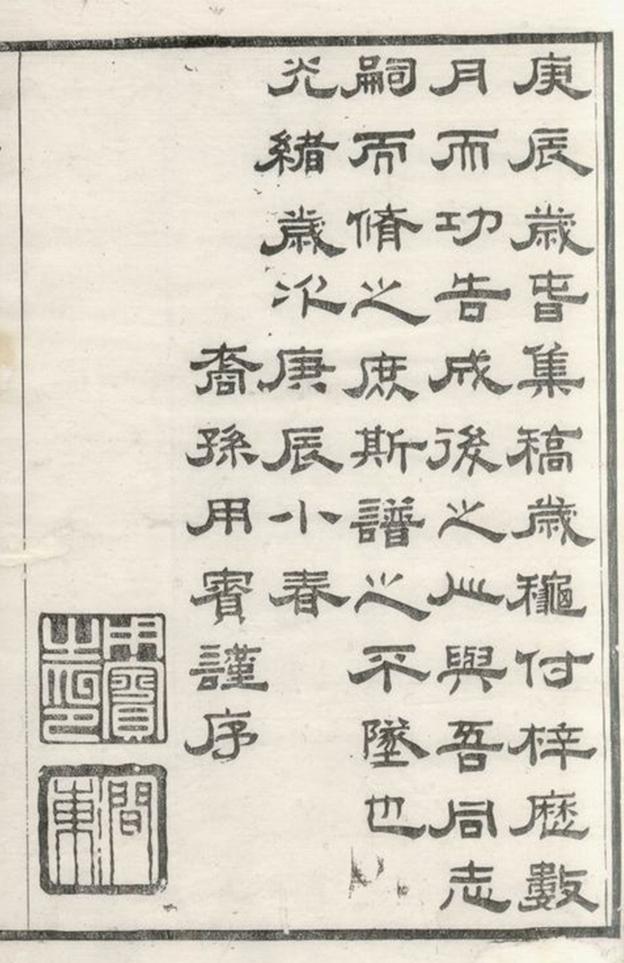 庚辰歲旾集稿歲穐付梓歷數
月而功告成後之人與吾同志
嗣而脩之庶斯譜之不墜也
光緒歲次庚辰小春
裔孫用賓謹序
用賓之印
間東